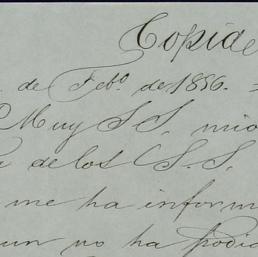 Copiad
de Feb.o de 1856.
Muy S.S. mio
de los C.S.S.
me ha inform
un no ha podid